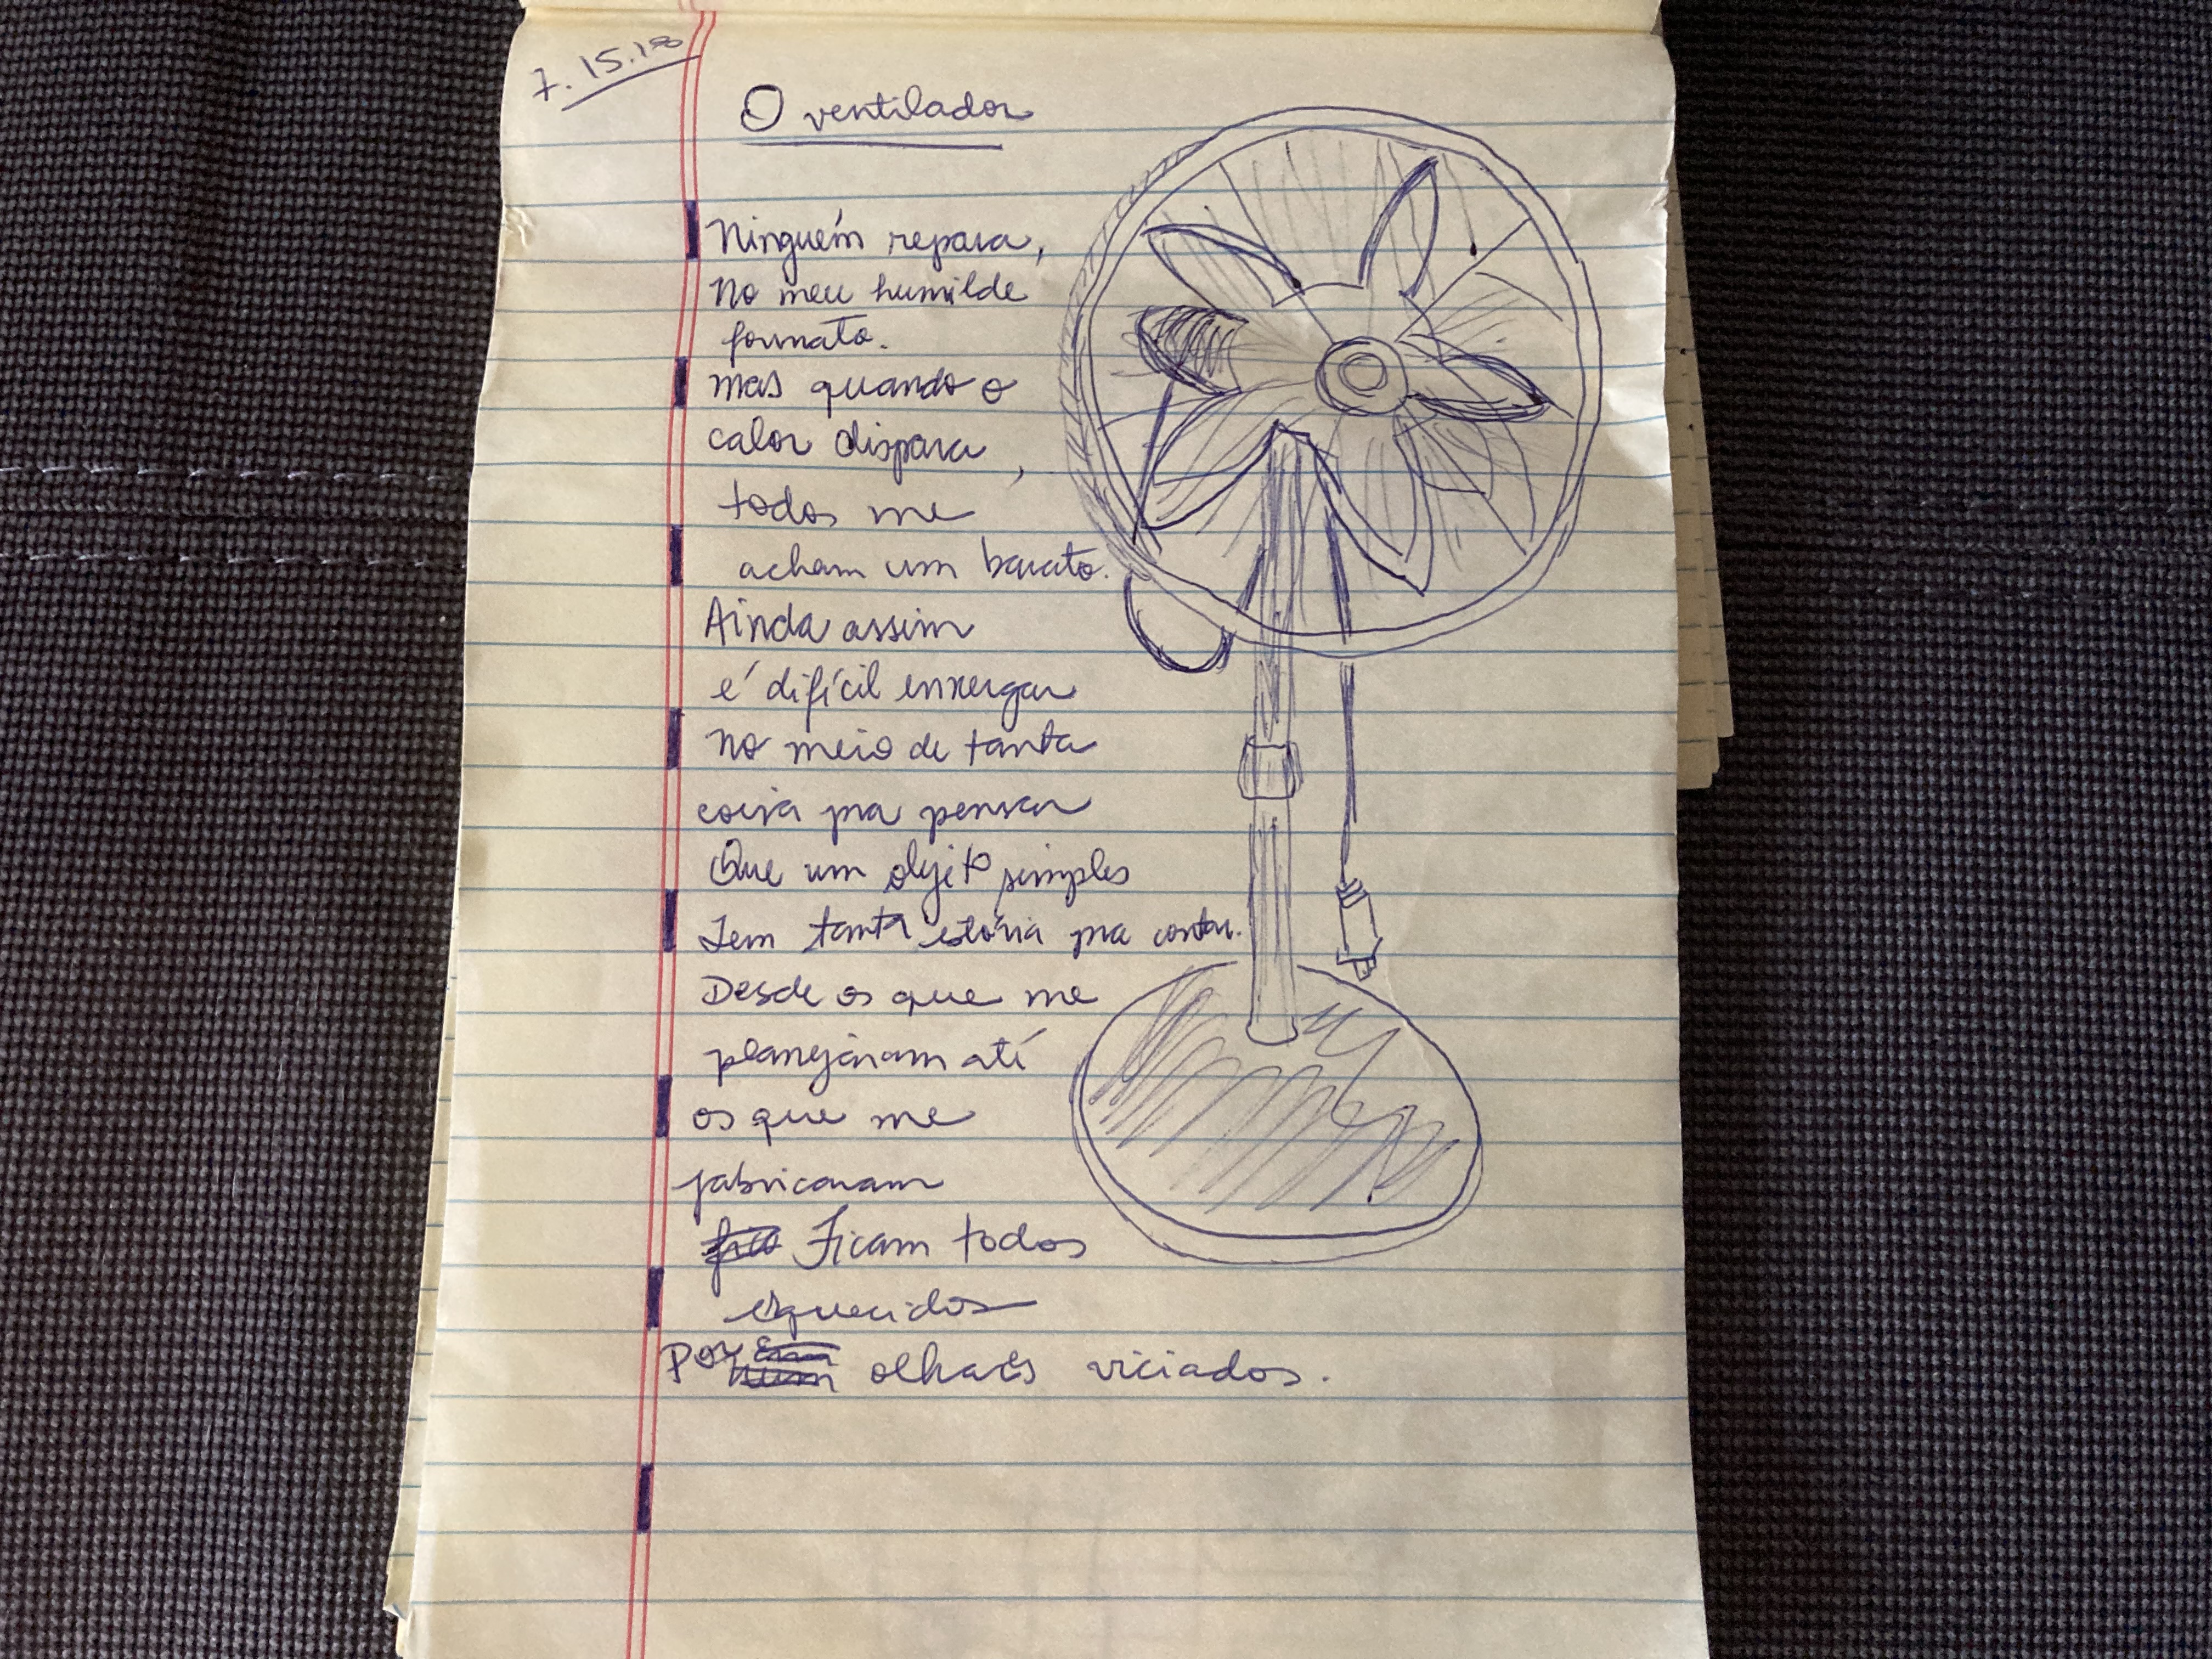 7.15.18
O ventilador
Ninguém repara,
no meu humilde
formato.
mas quando o
calor dispara,
todos me
acham um barato.
Ainda assim
é difícil enxergar
no meio de tanta
coisa pra pensar
Que um objeto simples
Tem tanta estória pra contar.
Desde os que me
planejaram até
os que me
fabricaram
Ficam todos
esquecidos
Por olhares viciados.